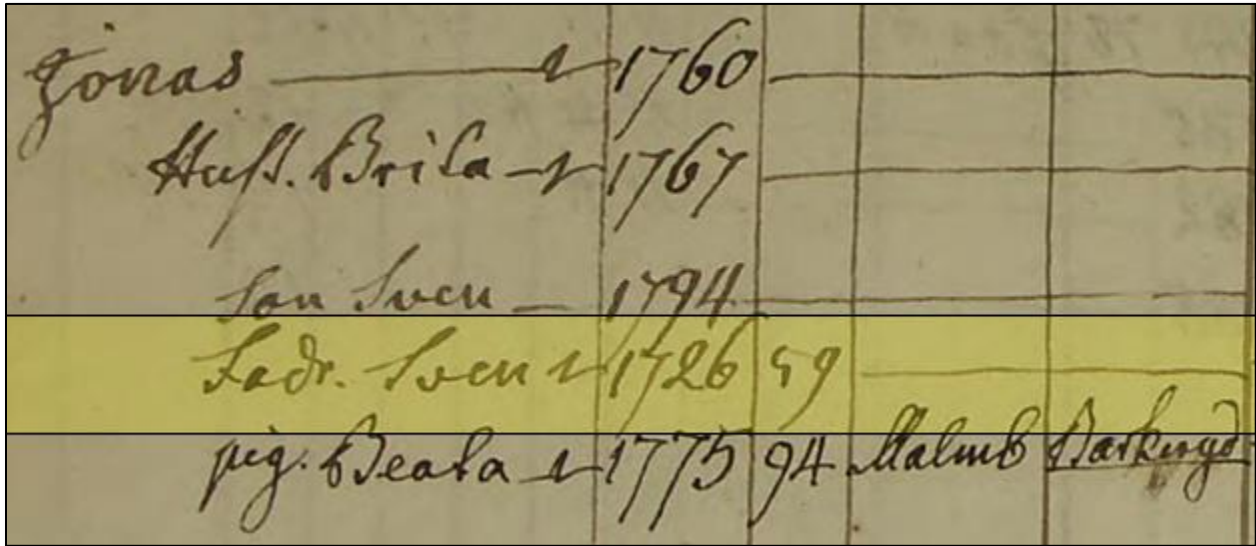 Jonas 1760
Hust. Brita 1767
Son Sven 1794
Fadr. Sven 1726 59
pig. Beata 1775 94 Malmb